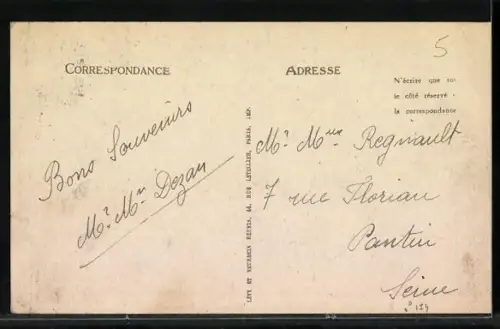 5
CORRESPONDANCE
ADRESSE
N'écrire que sur
le côté réservé à
la correspondance
Bons Souvenirs
Mr. Mme Dezan
LÉVY ET NEURDEIN RÉUNIS, 44, RUE LETELLIER, PARIS, IMP.
Mr. Mme Regnault
7 rue Florian
Pantin
Seine